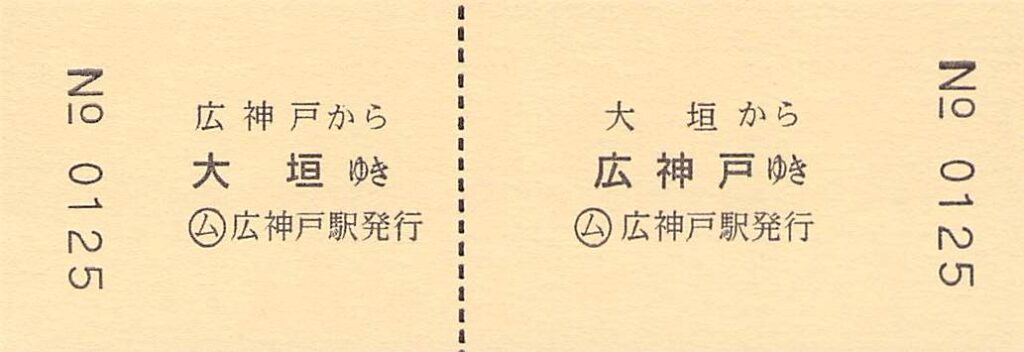 No 0125
広神戸から
大垣ゆき
㋰広神戸駅発行
大垣から
広神戸ゆき
㋰広神戸駅発行
No 0125